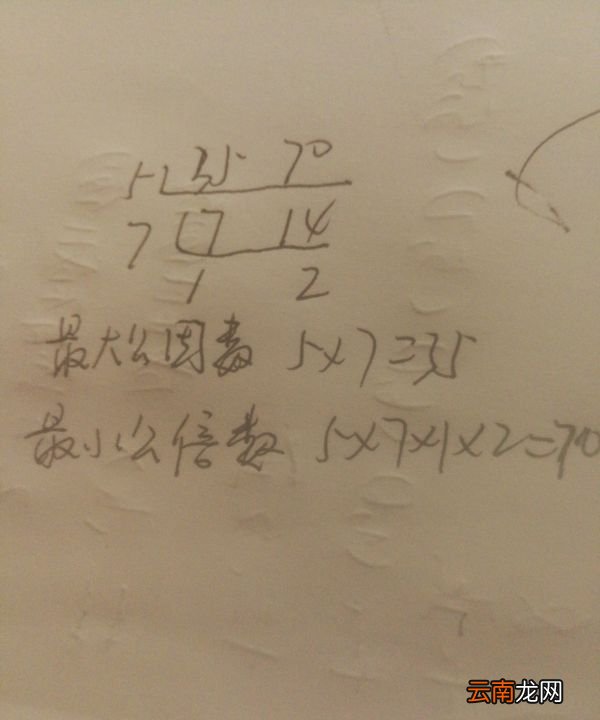 5 35 70
7 7 14
1 2
最大公因数 5×7=35
最小公倍数 5×7×1×2=70
云南龙网